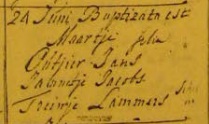 24 Juni Baptizata est
Maartje filia
Gutjier Jans
Jannetje Jacobs
Treintje Lammers